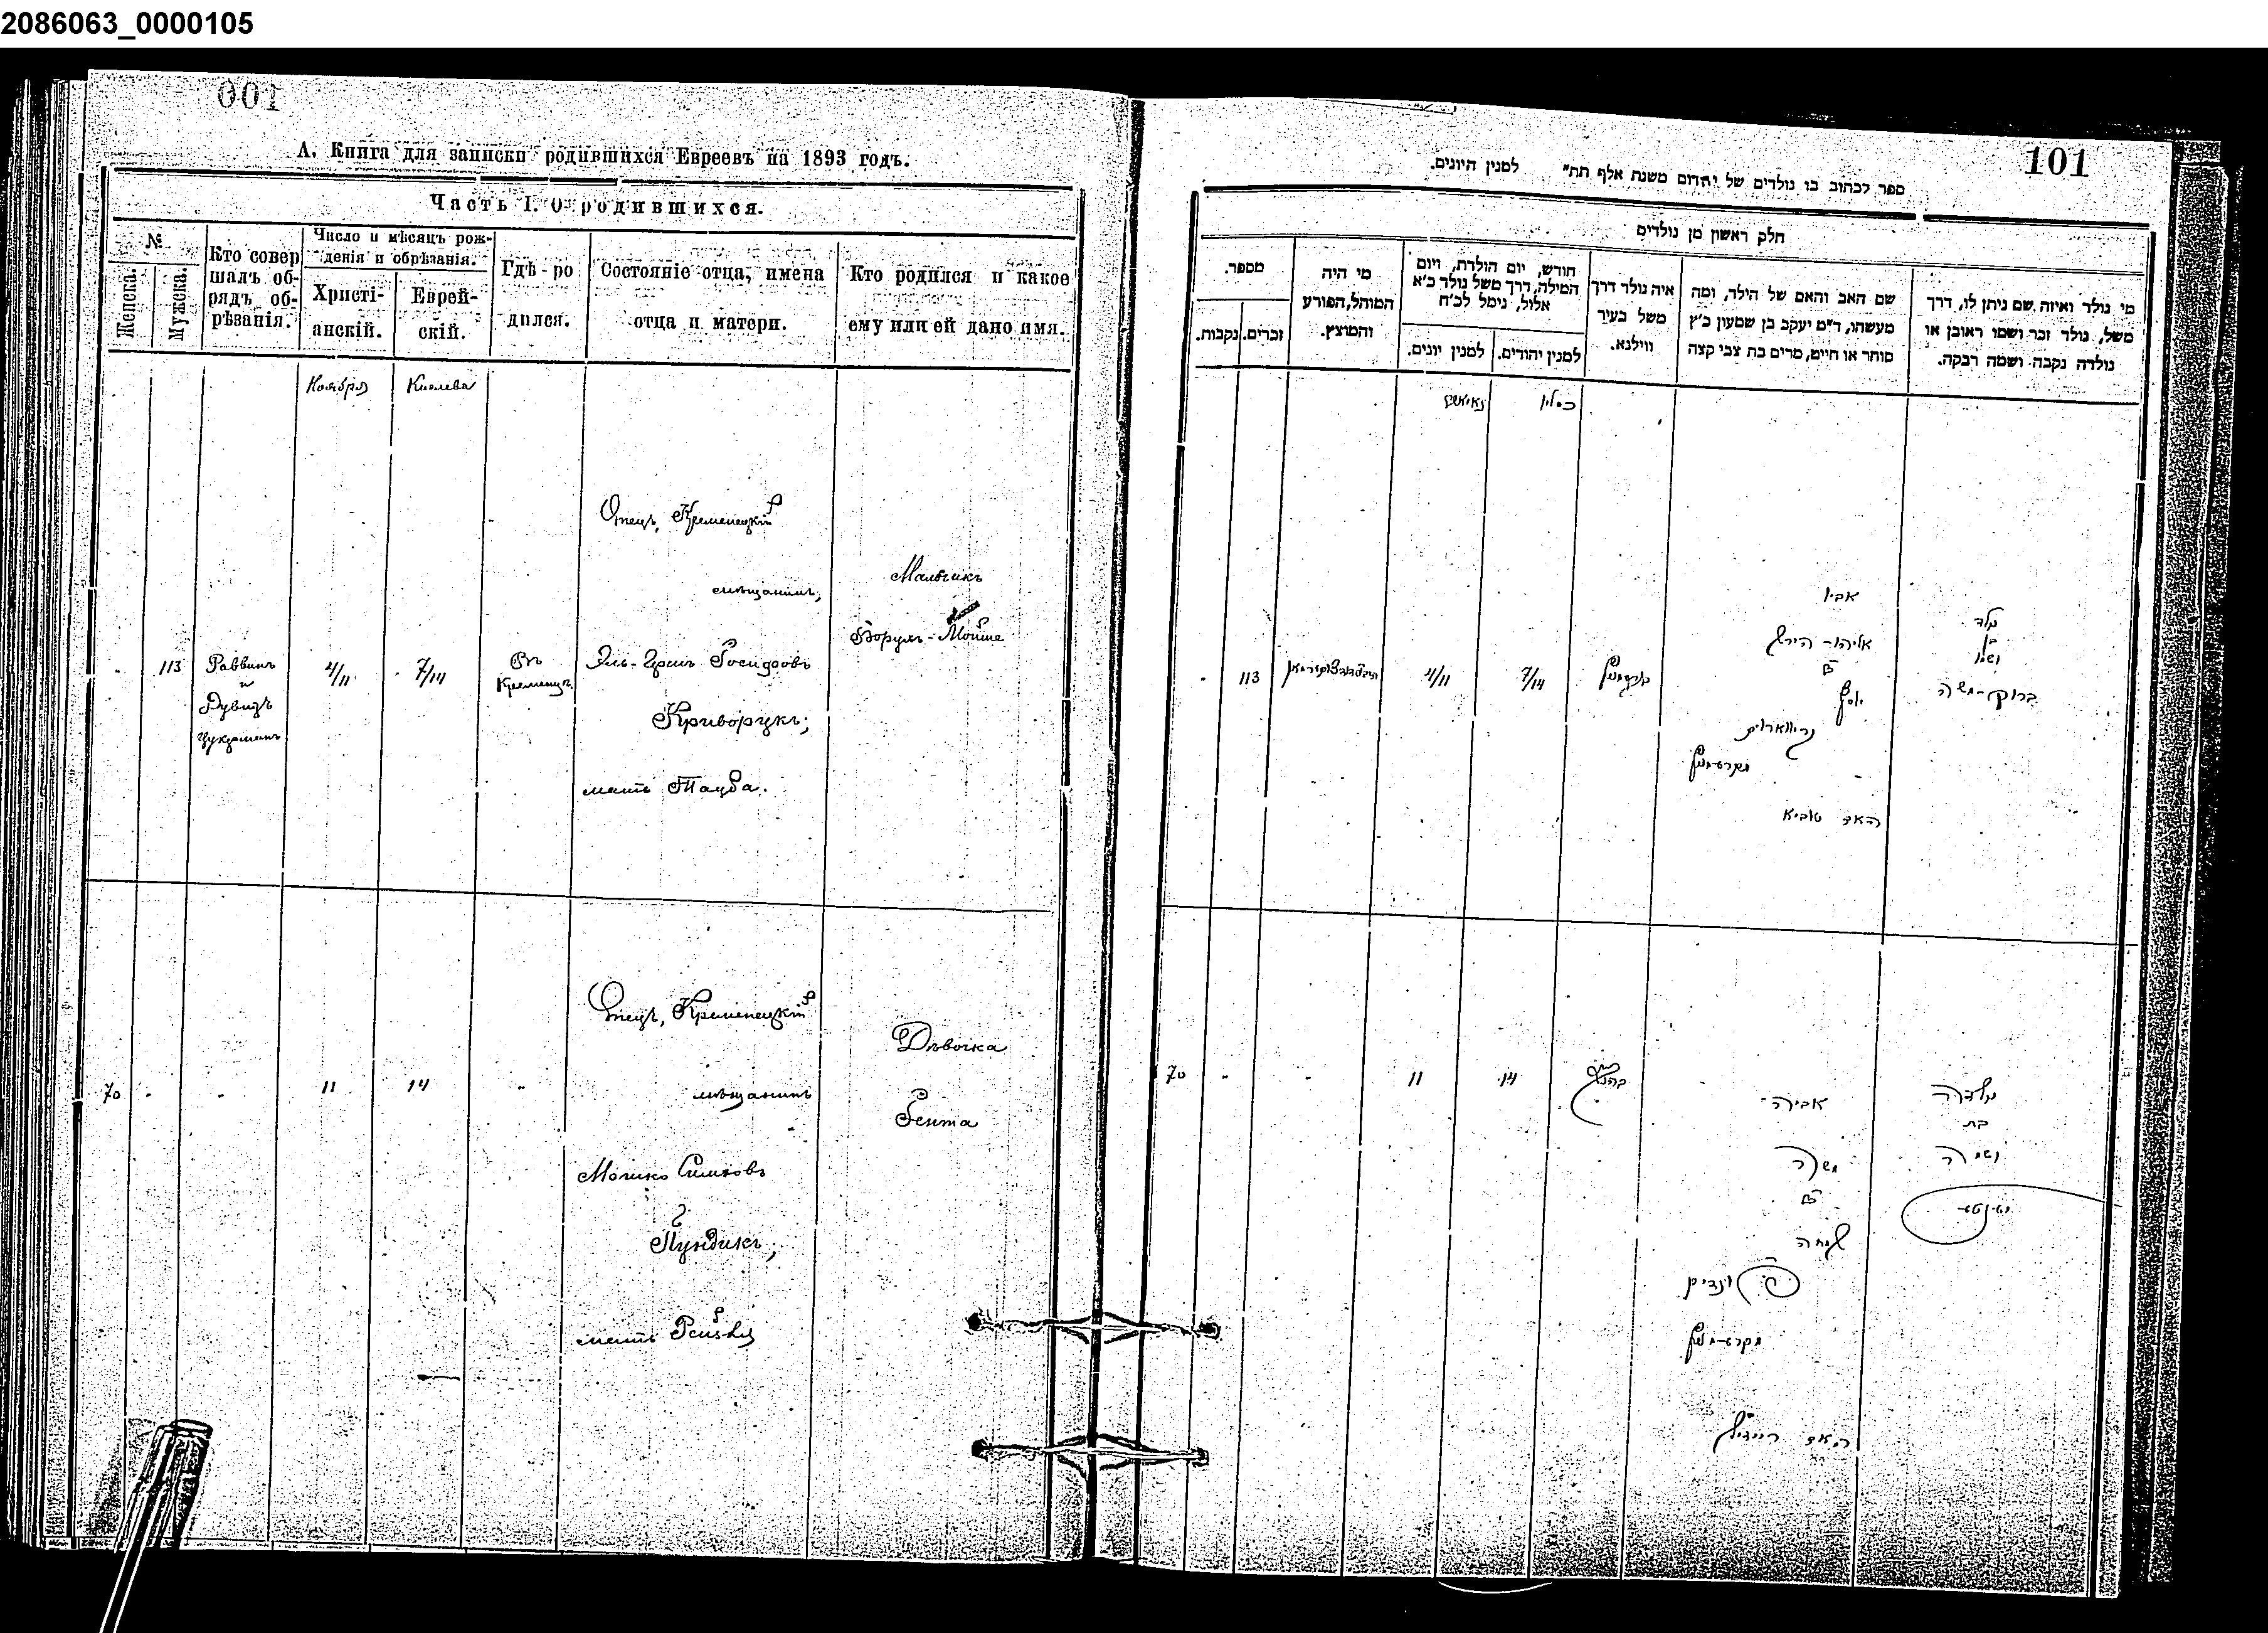 2086063_0000105
001
А. Книга для записки родившихся Евреевъ на 1893 годъ.
Часть I. О родившихся.
№
Женска.
Мужска.
Кто совер
шалъ об-
рядъ об-
рѣзанія.
Число и мѣсяцъ рож-
денія и обрѣзанія.
Христі-
анскій.
Еврей-
скій.
Гдѣ-ро
дился.
Состояніе отца, имена
отца и матери.
Кто родился и какое
ему или ей дано имя.
Ноября
Кислева
113
Раввинъ
и
Рувинъ
Цукерманъ
4/11
7/14
Въ
Кременцѣ
Отецъ, Кременецкій
мѣщанинъ,
Эль-Гершъ
Криворукъ;
мать Тауба.
Мальчикъ
Борухъ-Мойше
70
11
14
Отецъ, Кременецкій
мѣщанинъ
Мошко
Пундикъ;
мать
Дѣвочка
Йента
101
ספר לכתוב בו נולדים של יהדום משנת אלף תת״ למנין היונים.
חלק ראשון מן נולדים
מספר.
נקבות.
זכרים.
מי היה
המוהל,הפורע
והמוצץ.
חודש, יום הולדת, ויום
המילה, דרך משל נולד כ׳א
אלול, נימל לכ׳ח
למנין יונים.
למנין יהודים.
איה נולד דרך
משל בעיר
ווילנא.
שם האב והאם של הילד, ומה
מעשהו, ד״מ יעקב בן שמעון כ׳ץ
סוחר או חייט, מרים בת צבי קצה
מי נולד ואיזה שם ניתן לו, דרך
משל, נולד זכר ושמו ראובן או
נולדה נקבה ושמה רבקה.
כסלו
113
4/11
7/14
אביו
אליהו-הירש
ב״ר
יוסף
האם טובא
נולד
בן
ושמו
ברוך-משה
70
11
14
אביה
משה
ב״ר
שמחה
פונדיק
נולדה
בת
ושמה
יענטא